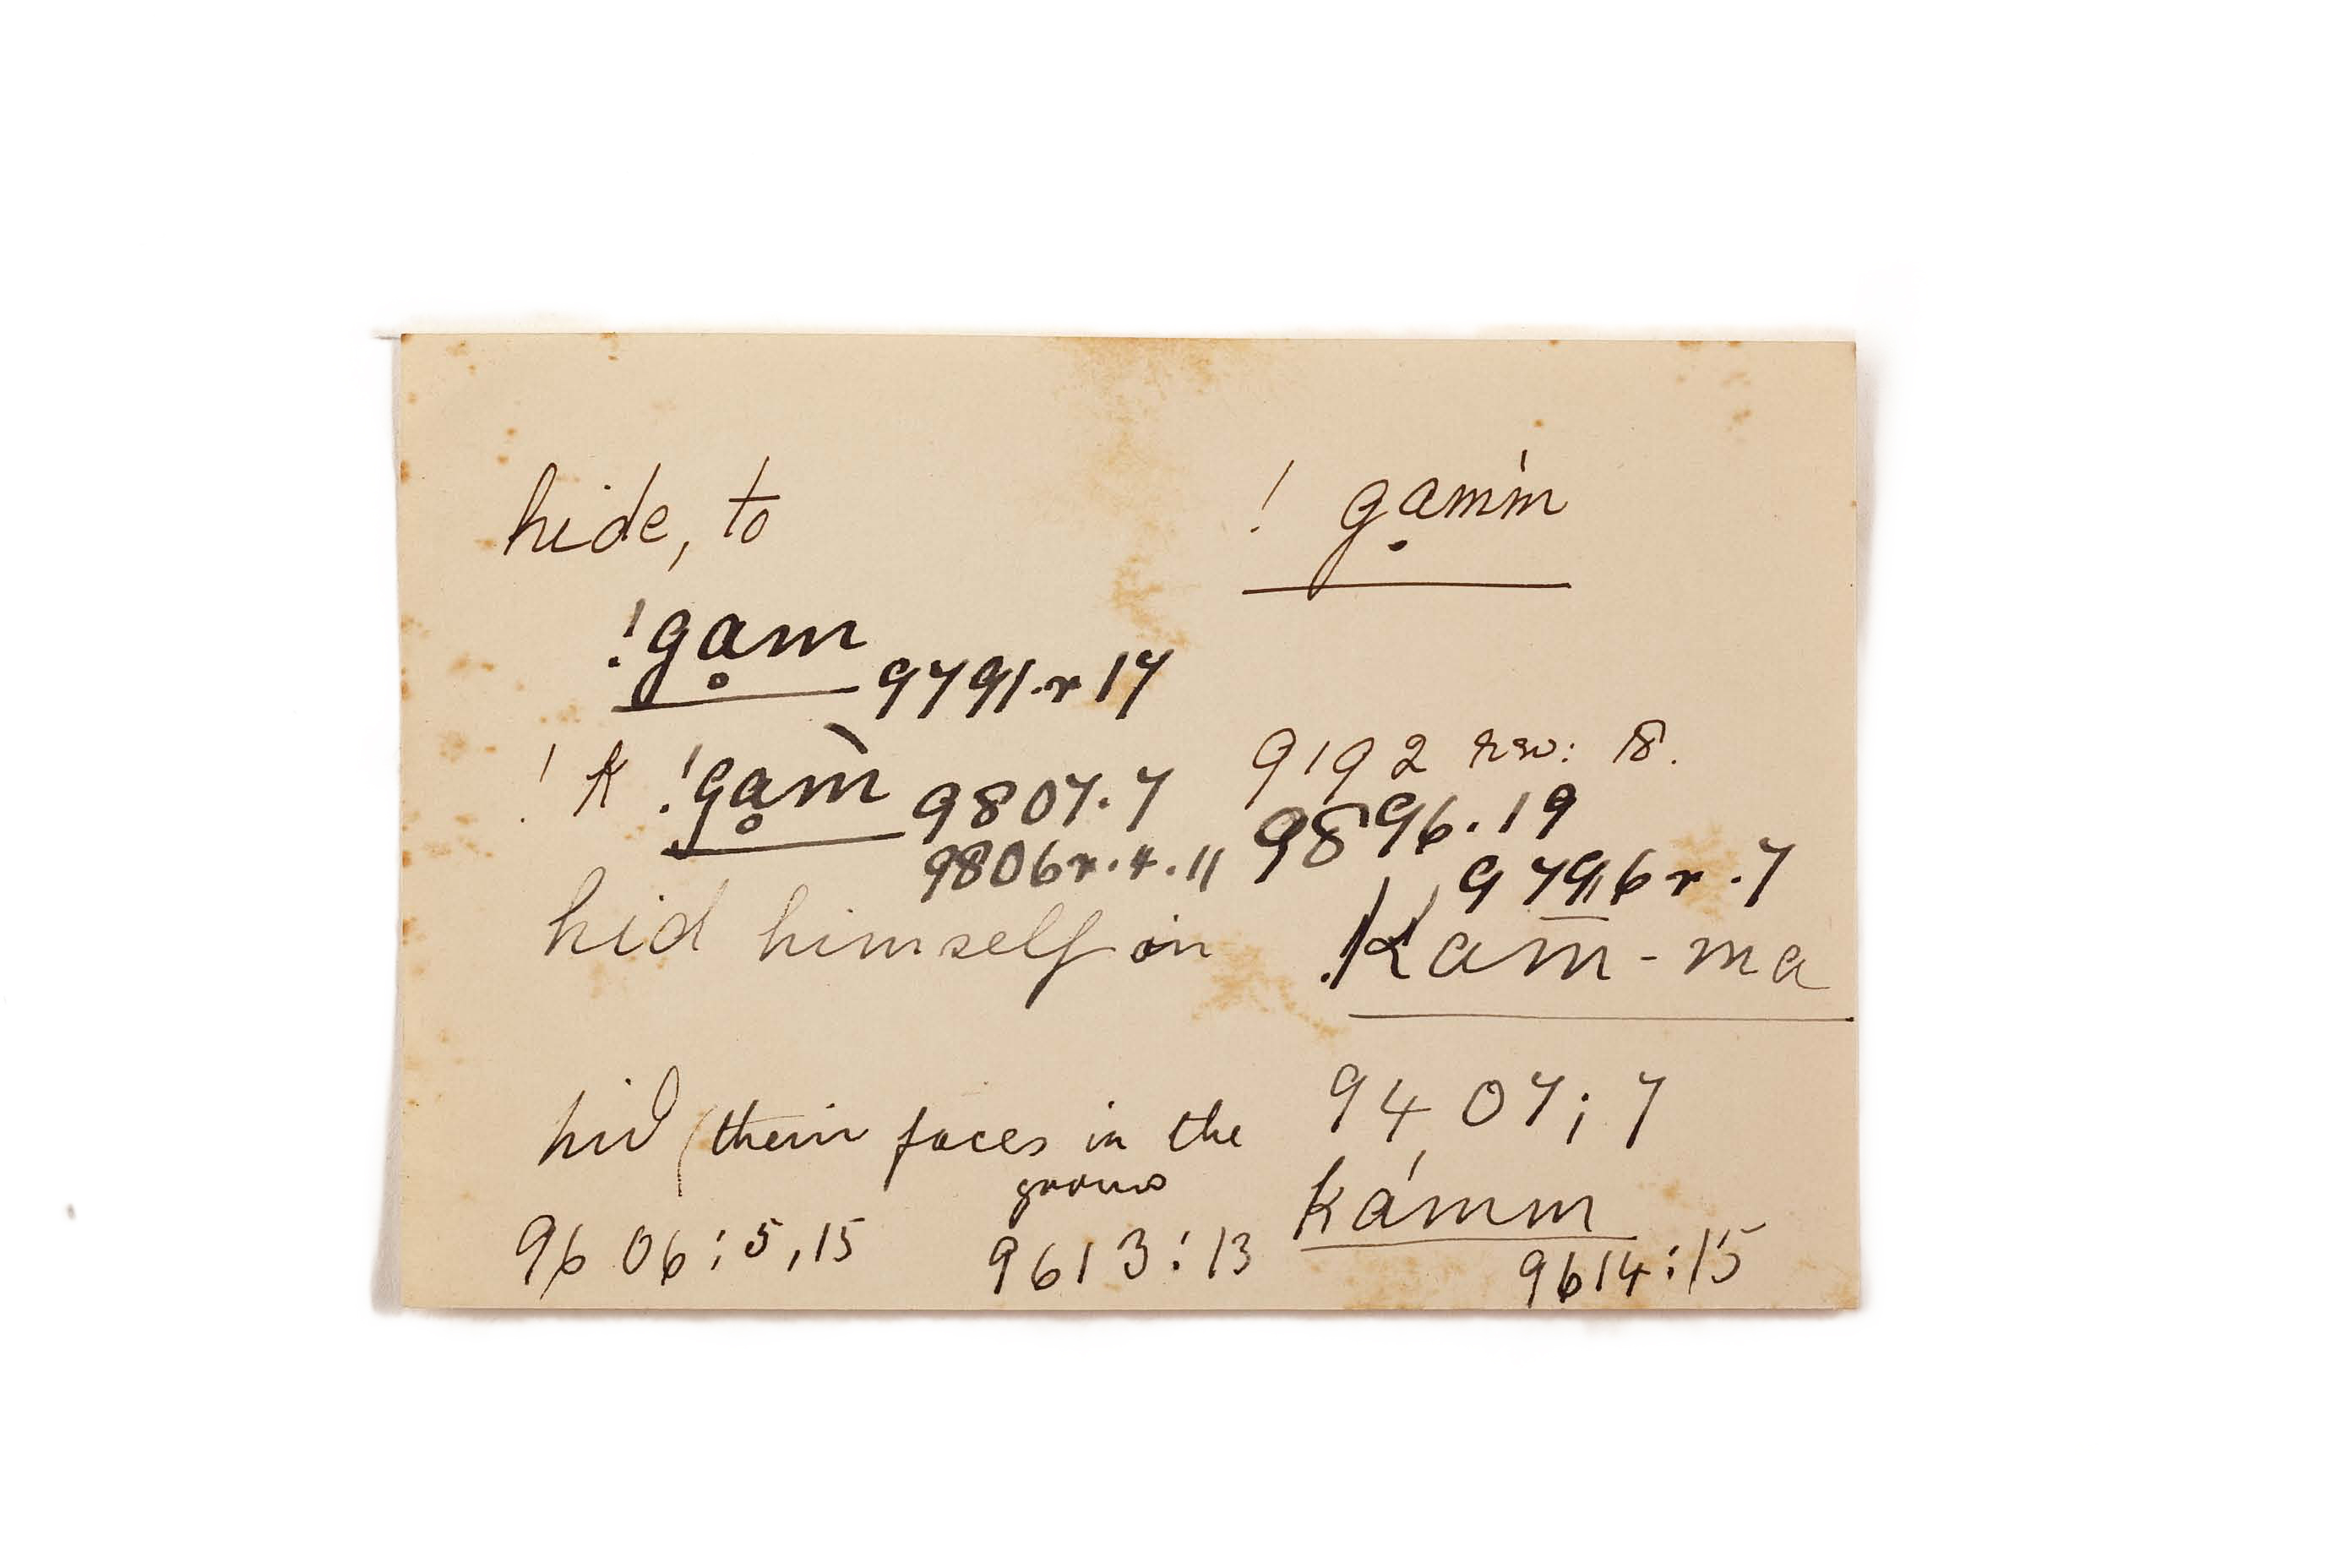 hide, to ! gạmḿ
!gạm 9791.r 17
! k !gạm̀ 9807.7 9192 rev: 18.
9806r.4.11 9896.19
9796r.7
hid himself in !kam̄-ma
9407; 7
hid (their faces in the
ground kámm
9606; 5, 15 9613:13 9614:15